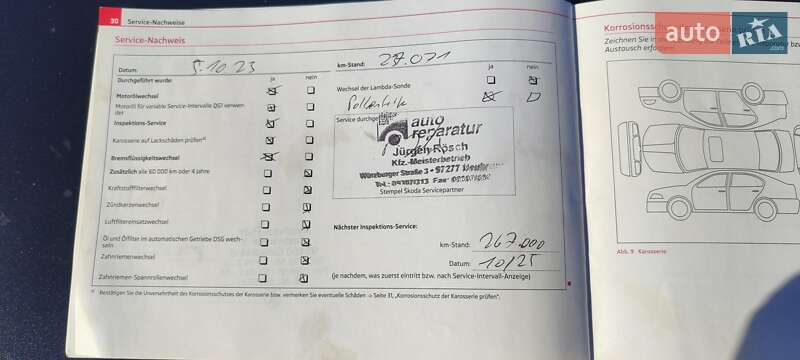 30 Service-Nachweise
Service-Nachweis
Datum: 5.10.23
km-Stand:
Durchgeführt wurde: ja nein
Motorölwechsel
Motoröl für variable Service-Intervalle QG1 verwendet
Inspektions-Service
Karosserie auf Lackschäden prüfen
Bremsflüssigkeitswechsel
Zusätzlich alle 60 000 km oder 4 Jahre
Kraftstofffilterwechsel
Zündkerzenwechsel
Luftfiltereinsatzwechsel
Öl und Ölfilter im automatischen Getriebe DSG wechseln
Zahnriemenwechsel
Zahnriemen-Spannrollenwechsel
ja nein
Wechsel der Lambda-Sonde
Service durchge
auto
reparatur
Jürgen Rösch
Kfz.-Meisterbetrieb
Würzburger Straße 3 • 97277
Stempel Škoda Servicepartner
Nächster Inspektions-Service:
km-Stand: 267.000
Datum: 10/25
(je nachdem, was zuerst eintritt bzw. nach Service-Intervall-Anzeige)
Bestätigen Sie die Unversehrtheit des Korrosionsschutzes der Karosserie bzw. vermerken Sie eventuelle Schäden → Seite 31, „Korrosionsschutz der Karosserie prüfen".
Korrosionssch
Zeichnen Sie in
Austausch erfor
Abb. 9 Karosserie
auto RIA
.com